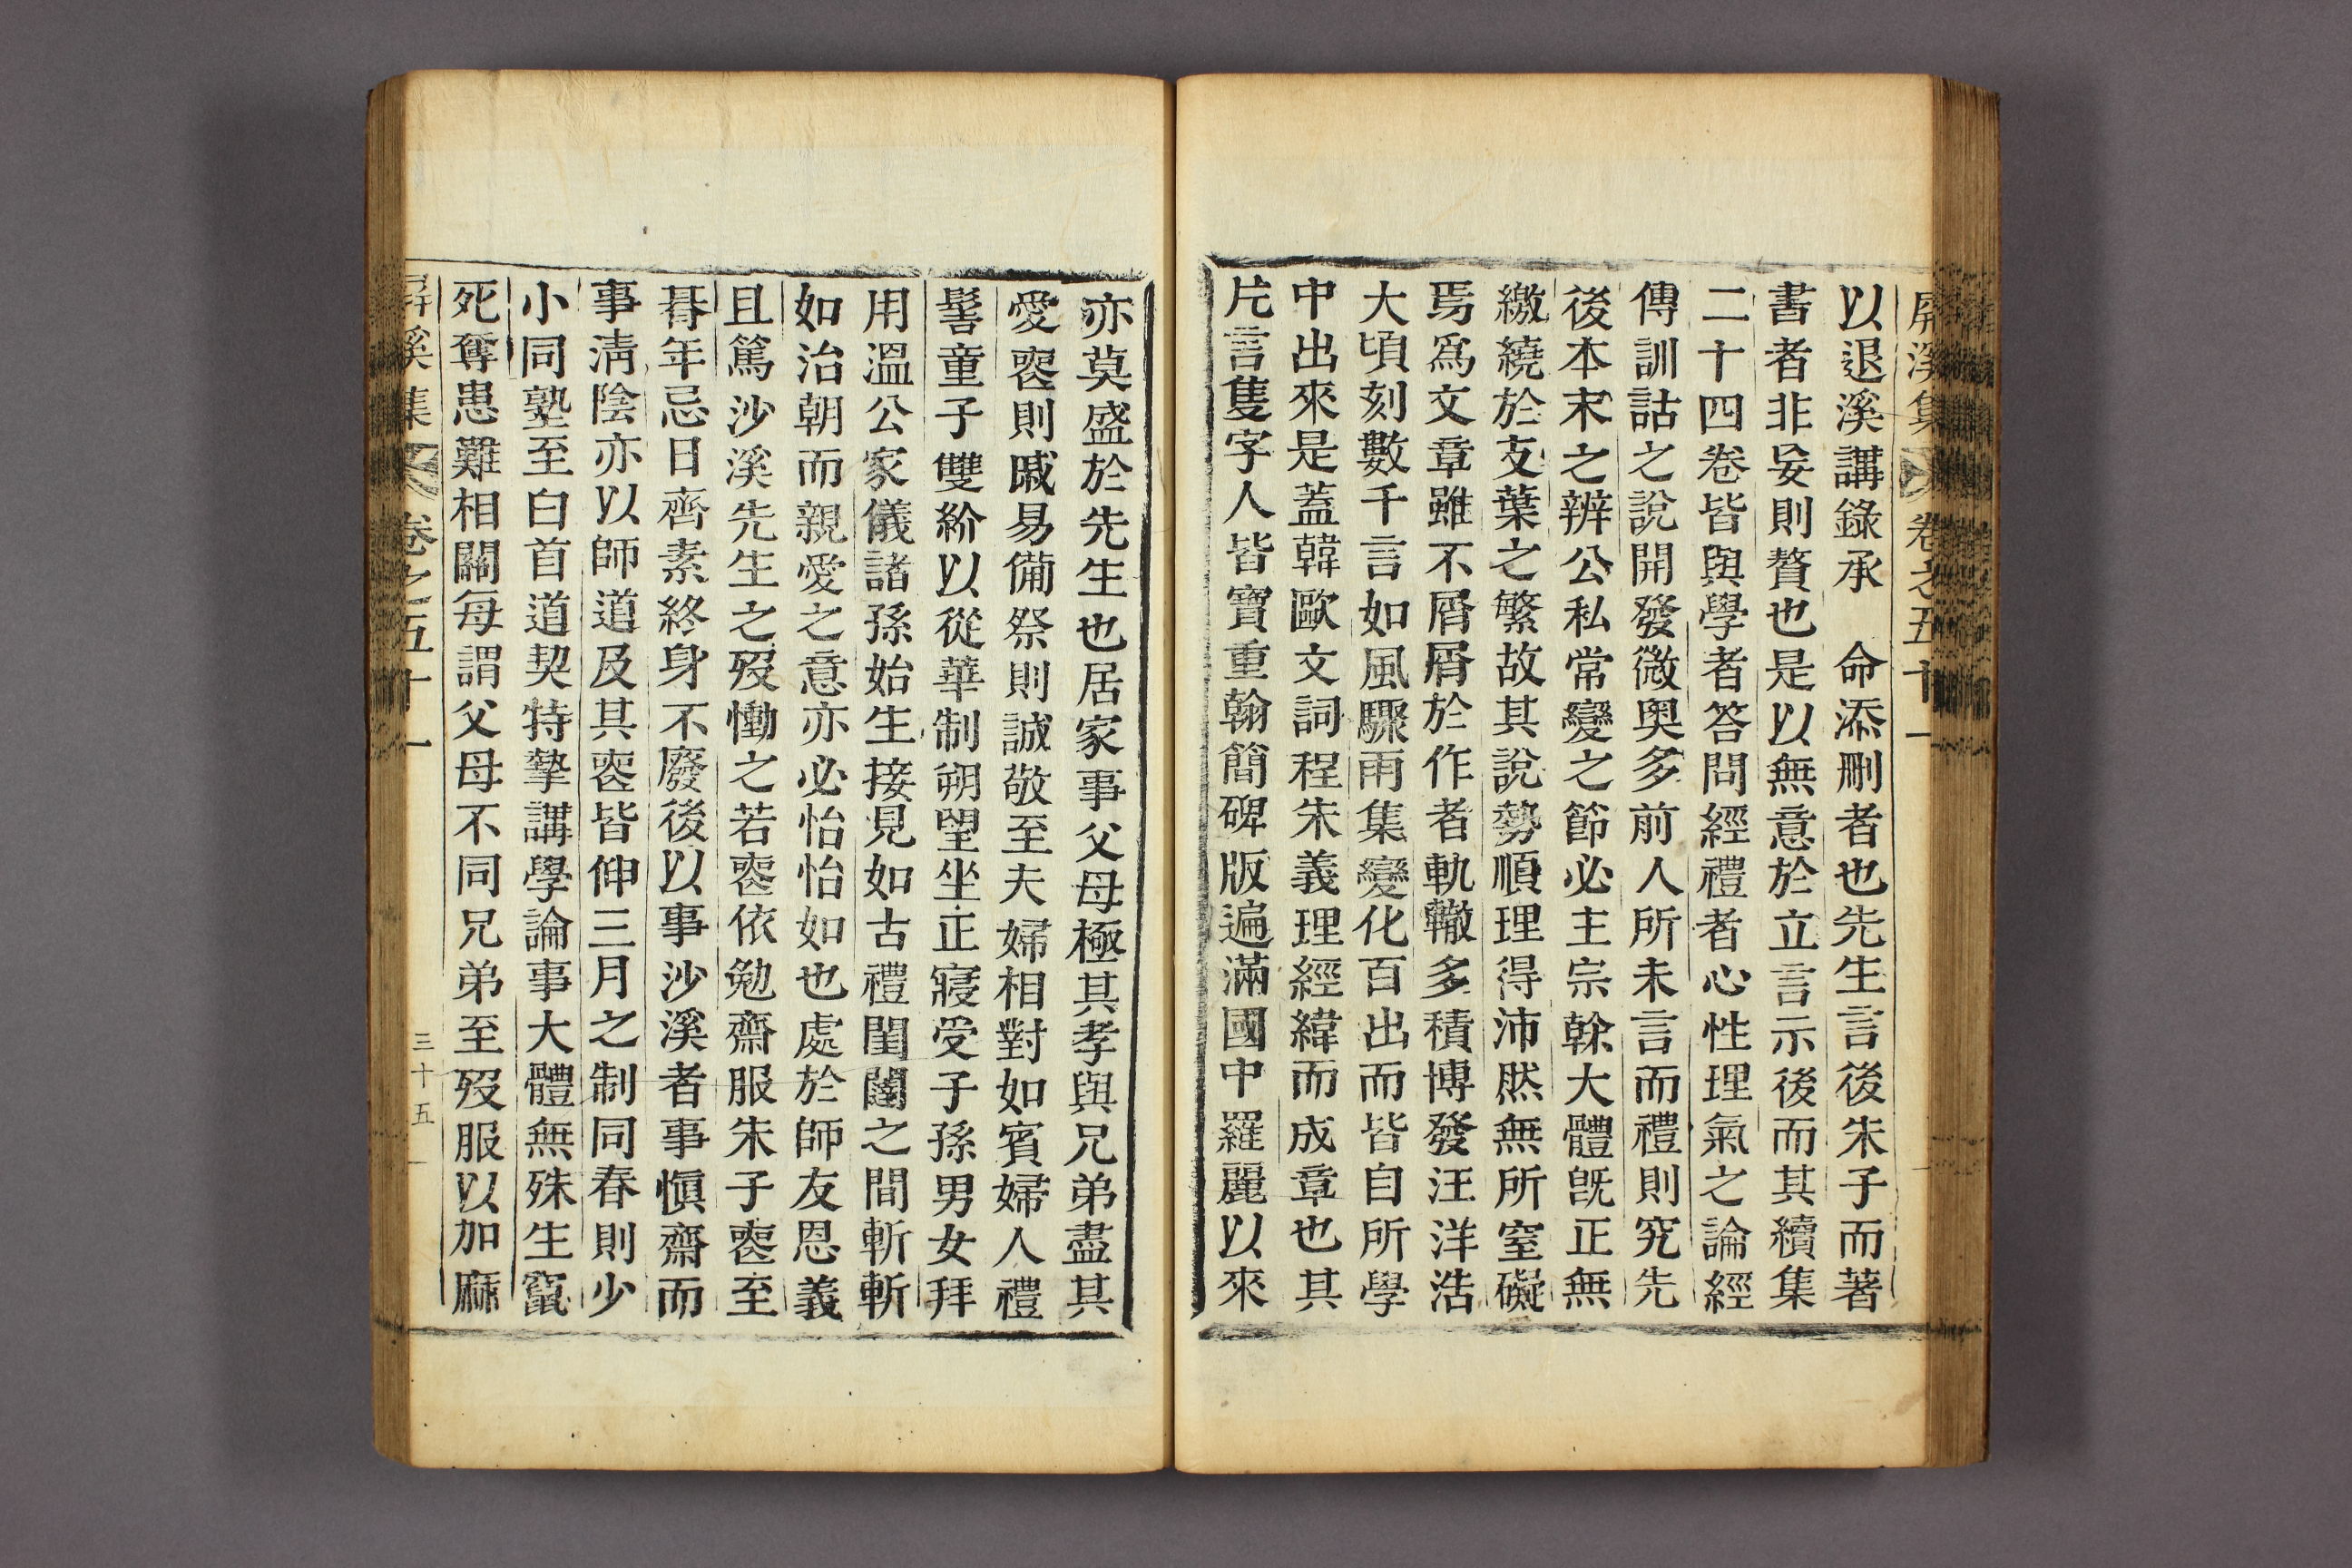 屛溪集 卷之五十一
以退溪講錄承 命添刪者也先生言後朱子而著
書者非妄則贅也是以無意於立言示後而其續集
二十四卷皆與學者答問經禮者心性理氣之論經
傳訓詁之說開發微奧多前人所未言而禮則究先
後本末之辨公私常變之節必主宗榦大體旣正無
繳繞於支葉之繁故其說勢順理得沛然無所窒礙
焉爲文章雖不屑屑於作者軌轍多積博發汪洋浩
大頃刻數千言如風驟雨集變化百出而皆自所學
中出來是蓋韓歐文詞程朱義理經緯而成章也其
片言隻字人皆寶重翰簡碑版遍滿國中羅麗以來
亦莫盛於先生也居家事父母極其孝與兄弟盡其
愛喪則戚易備祭則誠敬至夫婦相對如賓婦人禮
髻童子雙紒以從華制朔望坐正寢受子孫男女拜
用溫公家儀諸孫始生接見如古禮閨闥之間斬斬
如治朝而親愛之意亦必怡怡如也處於師友恩義
且篤沙溪先生之歿慟之若喪依勉齋服朱子喪至
朞年忌日齊素終身不廢後以事沙溪者事愼齋而
事淸陰亦以師道及其喪皆伸三月之制同春則少
小同塾至白首道契特摯講學論事大體無殊生竄
死奪患難相關每謂父母不同兄弟至歿服以加麻
屛溪集 卷之五十一 三十五